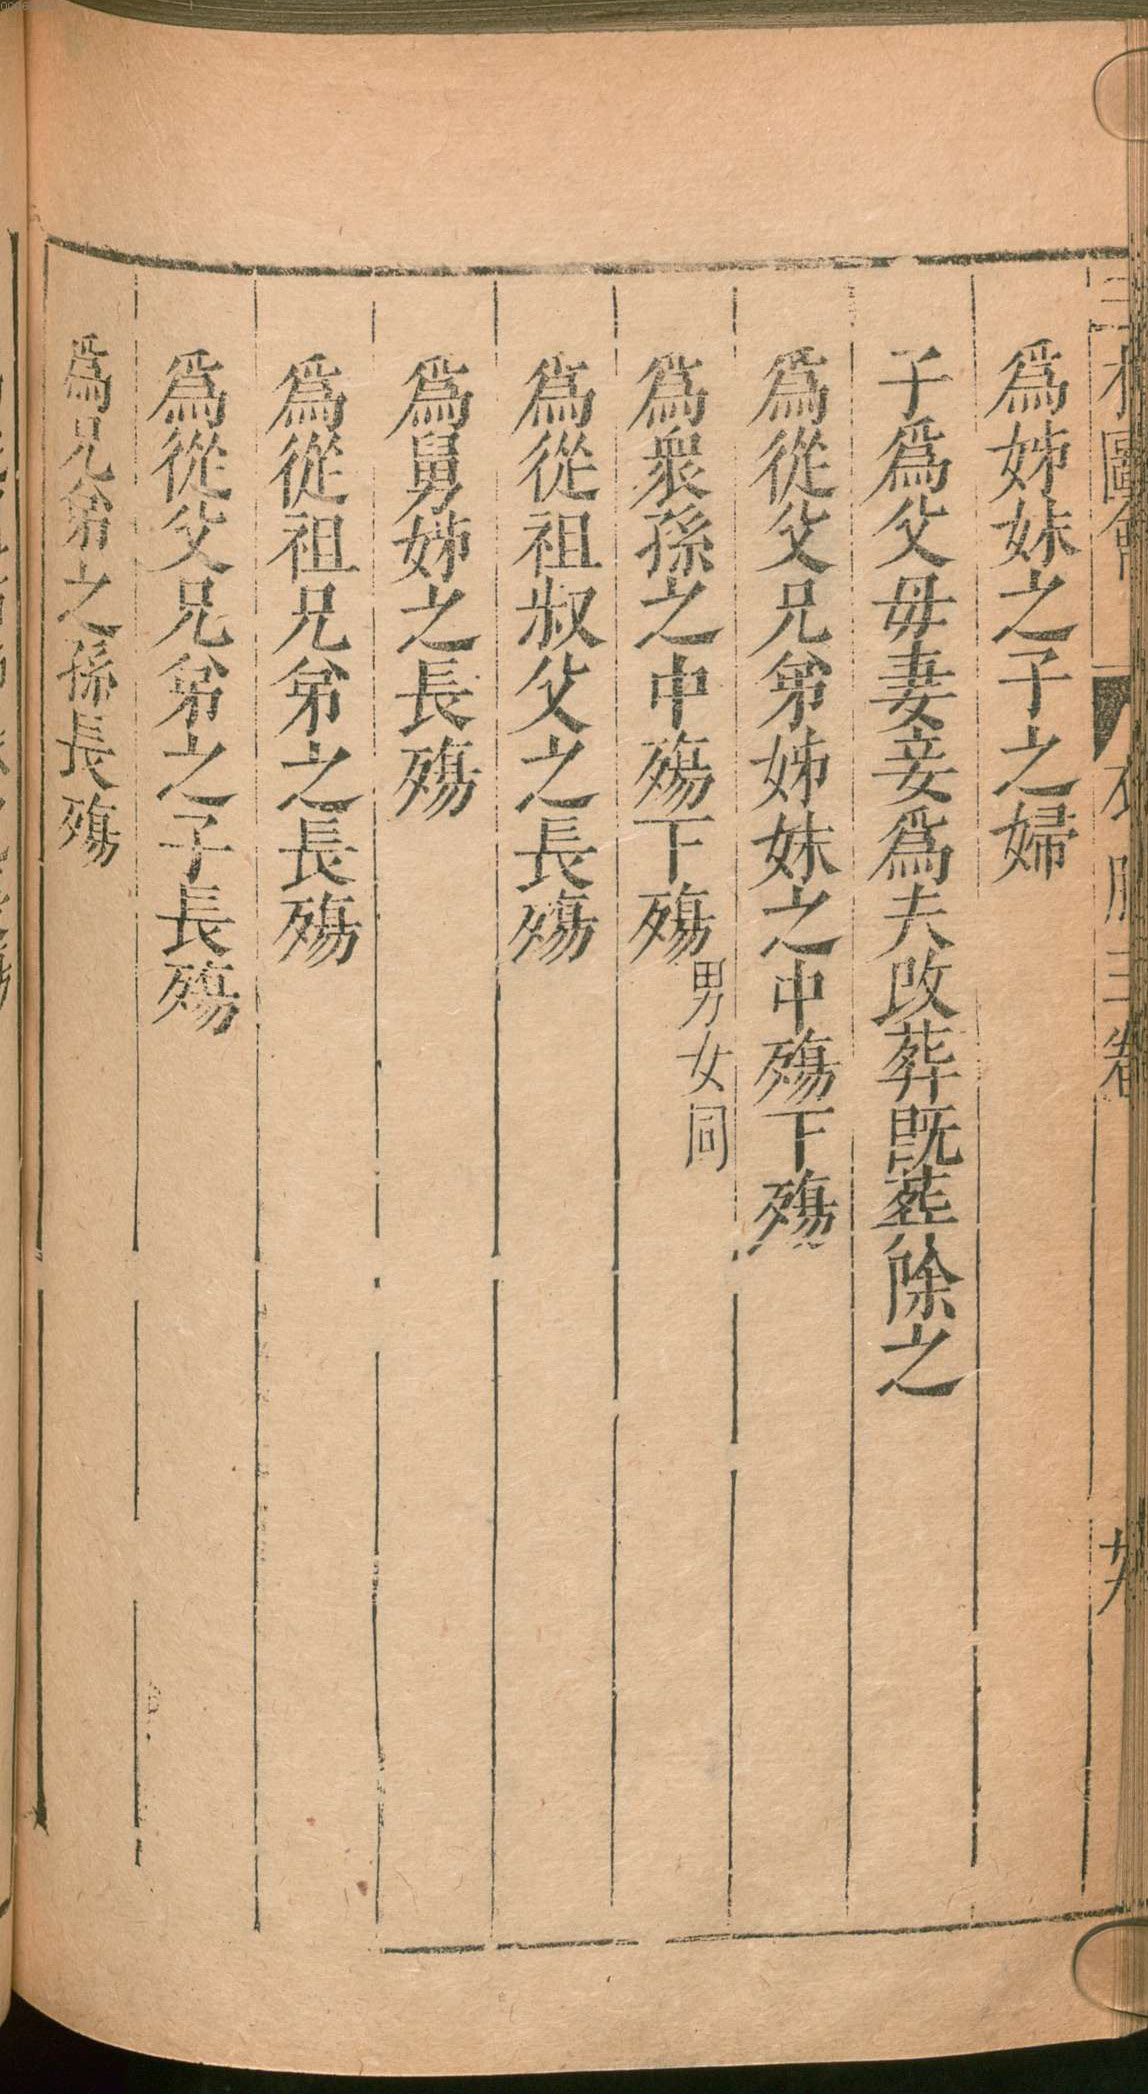 三才圖會 衣服三卷 廿九
爲姊妹之子之婦
子爲父母妻妾爲夫改葬既葬除之
爲從父兄弟姊妹之中殤下殤
爲衆孫之中殤下殤男女同
爲從祖叔父之長殤
爲舅姊之長殤
爲從祖兄弟之長殤
爲從父兄弟之子長殤
爲兄弟之孫長殤